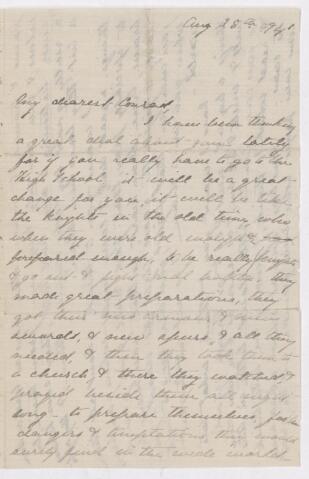 Aug 28th
My dearest Conrad,
I have been thinking
a great deal about you lately
for if you really have to go to the
High School it will be a great
change for you, it will be like
the Knights in the old times, who
when they were old enough &
prepared enough, to be really knights
& go out & fight real battles, they
made great preparations, they
got their new armour & new
swords, & new spurs, & all they
needed, & then they took them to
a church & there they watched &
prayed beside them all night
long - to prepare themselves for the
dangers & temptations they would
surely find in the wide world